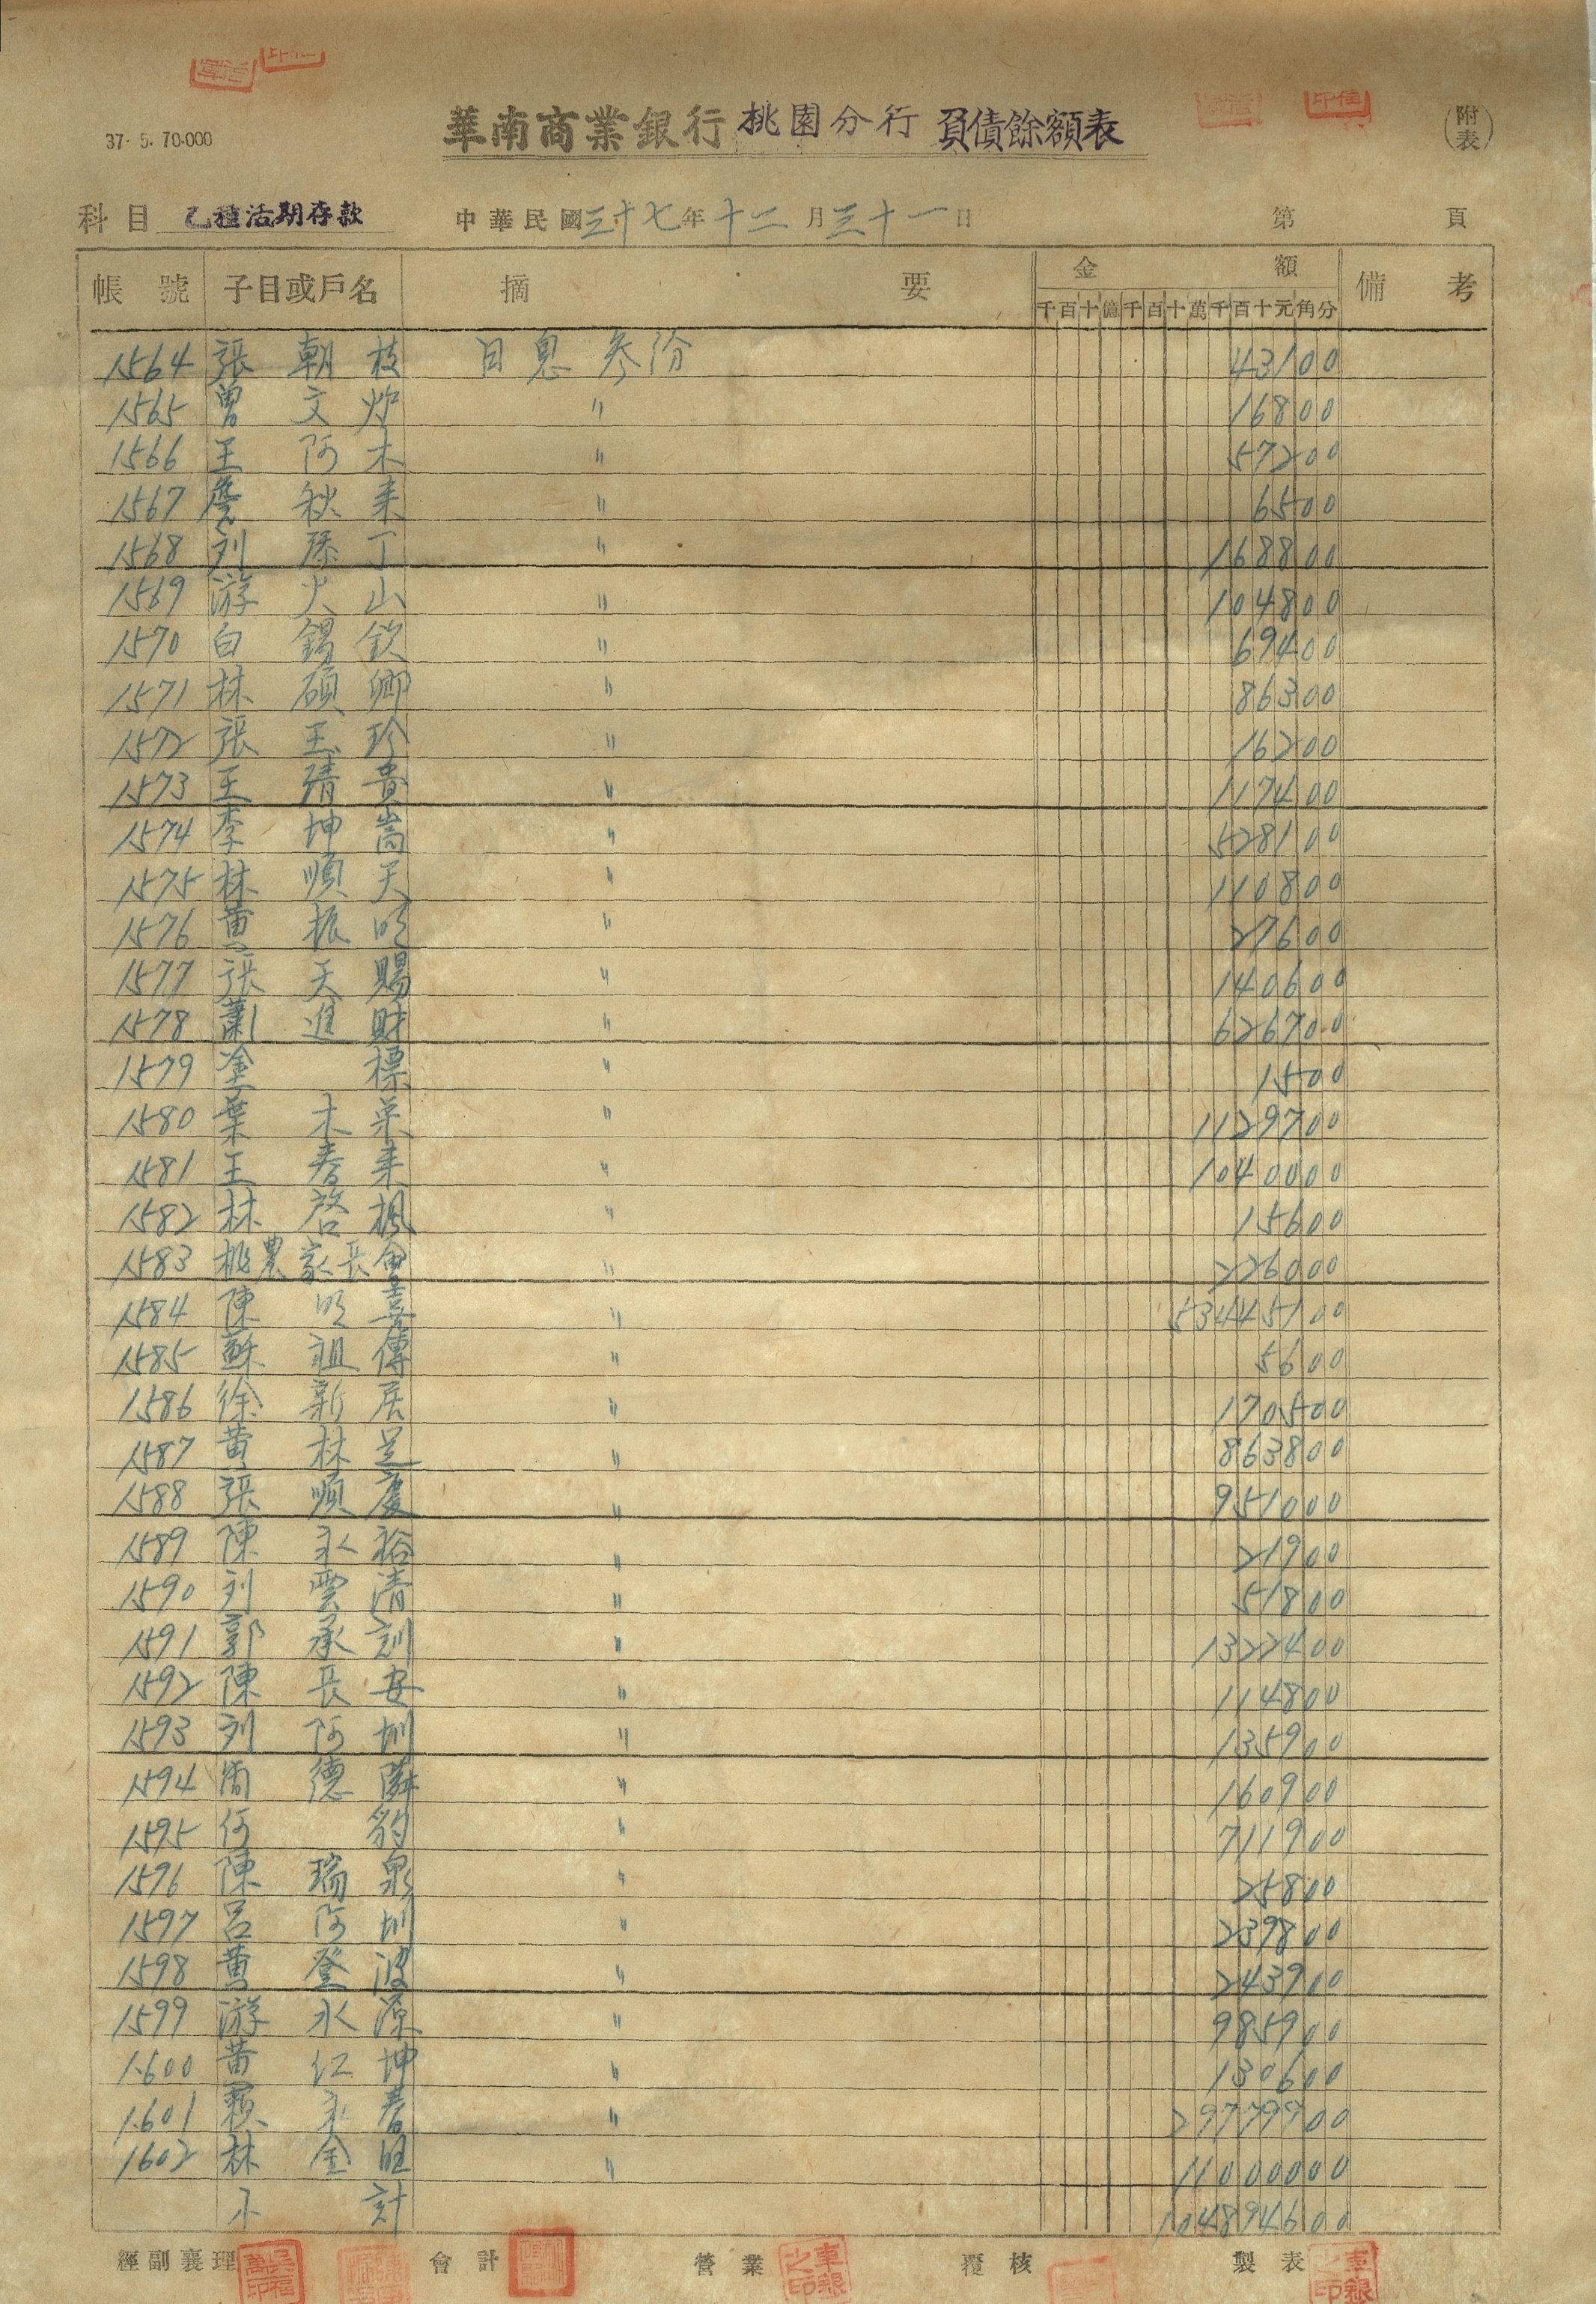 37. 5. 70.000
華南商業銀行 桃園分行 負債餘額表
(附表)
科目 乙種活期存款 中華民國三十七年十二月三十一日 第 頁
帳號 子目或戶名 摘要 金額 備考
千百十億千百十萬千百十元角分
1564 張朝枝 日息參分 43100
1565 曾文炉 〃 16800
1566 王阿木 〃 57200
1567 詹秋来 〃 6500
1568 刘添丁 〃 168800
1569 游火山 〃 104800
1570 白錫欽 〃 69400
1571 林碩卿 〃 86300
1572 張玉珍 〃 16200
1573 王靖貴 〃 117400
1574 李坤崙 〃 528100
1575 林順天 〃 110800
1576 黃振明 〃 27600
1577 張天賜 〃 140600
1578 蕭進財 〃 626700
1579 塗標 〃 1500
1580 葉木菜 〃 1129700
1581 王春来 〃 1040000
1582 林啓楓 〃 15600
1583 桃農家長會 〃 226000
1584 陳明喜 〃 53445100
1585 蘇祖傳 〃 5600
1586 徐新居 〃 170500
1587 黃林足 〃 863800
1588 張順慶 〃 951000
1589 陳永裕 〃 21900
1590 刘雲清 〃 51800
1591 郭承訓 〃 1322400
1592 陳長安 〃 114800
1593 刘阿圳 〃 135900
1594 簡德 〃 160900
1595 何豹 〃 711900
1596 陳瑞泉 〃 25800
1597 呂阿圳 〃 239800
1598 黃登波 〃 243900
1599 游永源 〃 985900
1600 黃紅坤 〃 130600
1601 賴永春 〃 29779900
1602 林金旺 〃 11000000
小計 104894600
經副襄理 會計 營業 覆核 製表